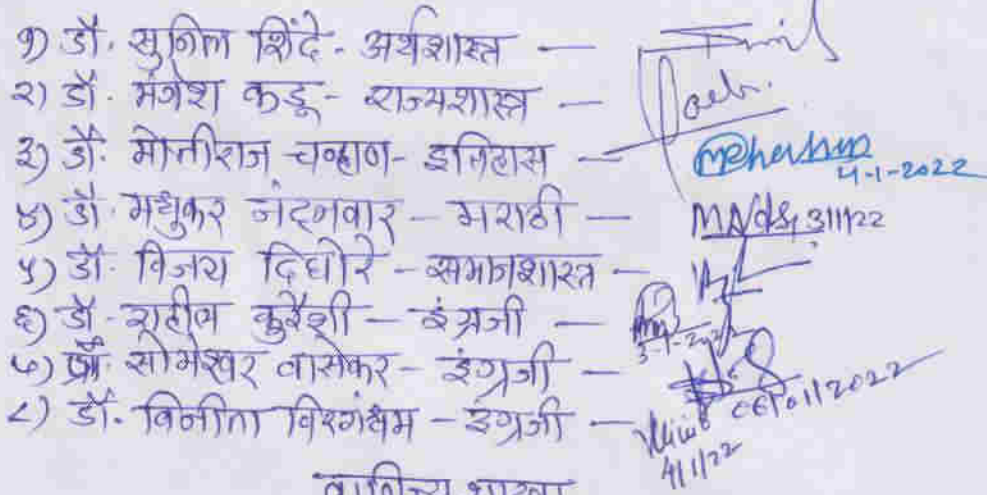 १) डॉ. सुनिल शिंदे - अर्थशास्त्र —
२) डॉ. मंगेश कडू - राज्यशास्त्र —
३) डॉ. मोतीराज चव्हाण - इतिहास — 4-1-2022
४) डॉ. मधुकर नंदनवार - मराठी — 3/1/22
५) डॉ. विजय दिघोरे - समाजशास्त्र —
६) डॉ. राहील कुरैशी - इंग्रजी — 3-1-2022
७) प्रा. सोमेश्वर वासेकर - इंग्रजी — 06/01/2022
८) डॉ. विनीता विरगंधम - इंग्रजी — 4/1/22
वाणिज्य शाखा